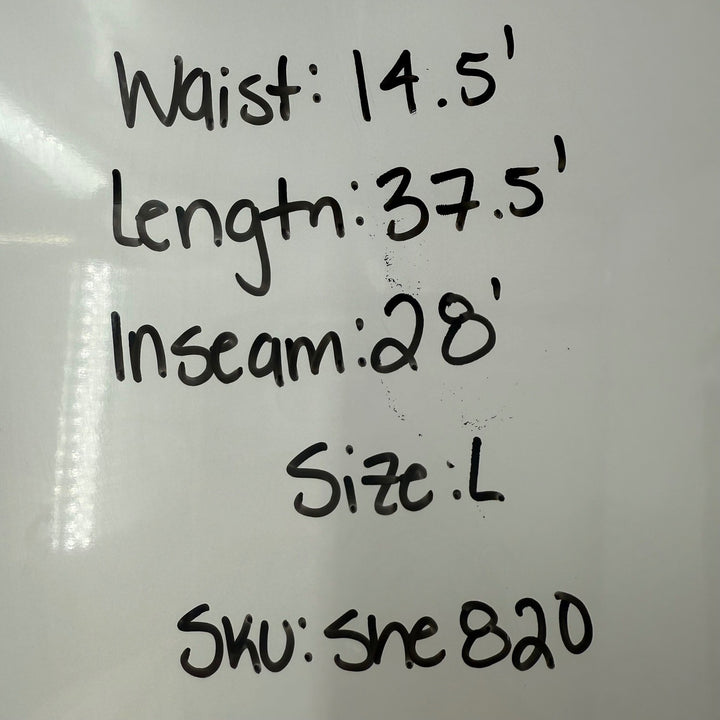 Waist: 14.5'
Length: 37.5'
Inseam: 28'
Size: L
SKU: She820